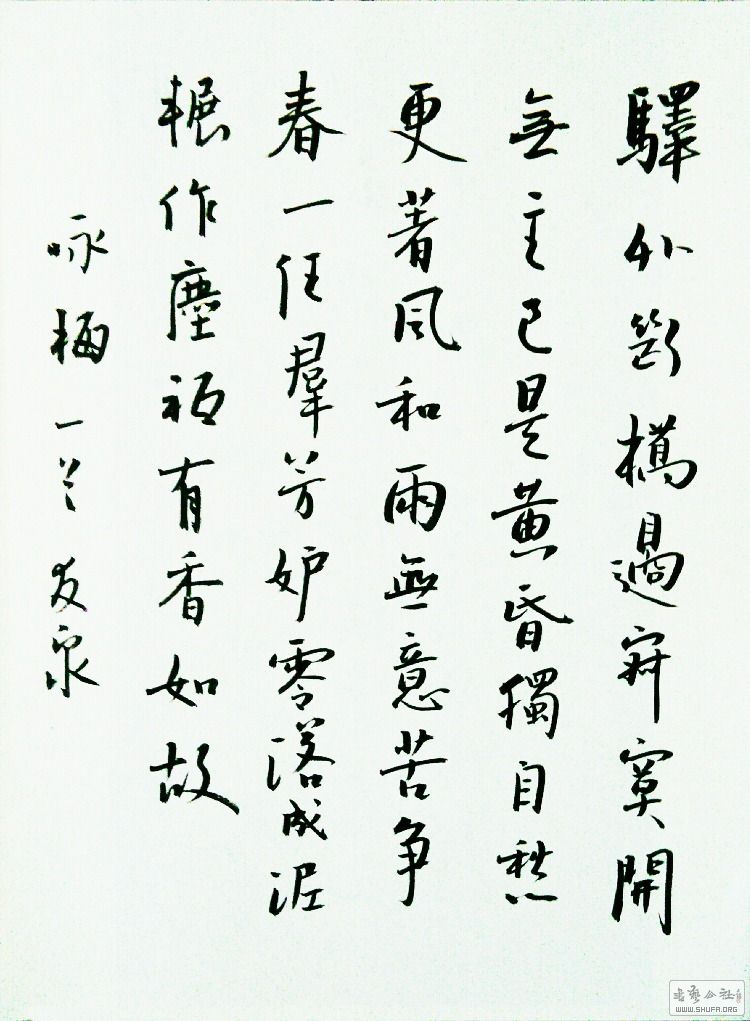 驛外斷橋邊寂寞開
無主已是黃昏獨自愁
更著風和雨無意苦爭
春一任羣芳妒零落成泥
輾作塵祗有香如故
咏梅一 友泉
书艺公社
WWW.SHUFA.ORG